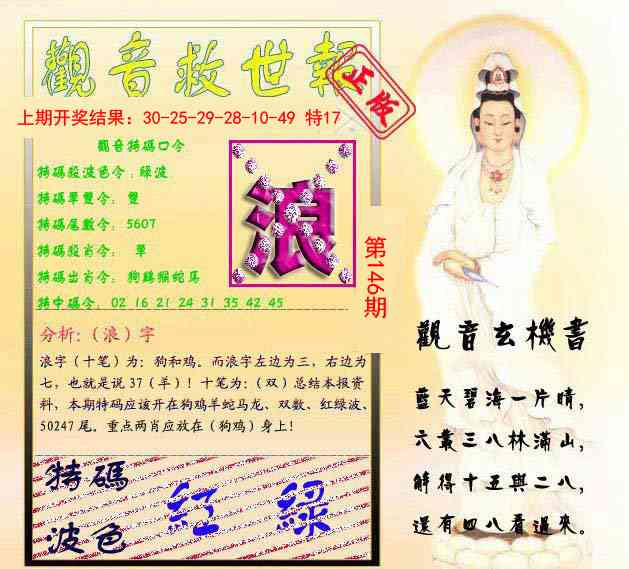 觀音救世報
正版
上期开奖结果：30-25-29-28-10-49 特17
觀音特碼口令
特碼段波色令：綠波
特碼單雙令： 雙
特碼尾數令： 5607
特碼段肖令： 單
特碼出肖令： 狗鷄猴蛇马
特中碼令： 02 16 21 24 31 35 42 45
浪
第146期
分析:（浪）字
浪字（十笔）为：狗和鸡。而浪字左边为三，右边为
七，也就是说 37（羊）！十笔为：（双）总结本报资
料，本期特码应该开在狗鸡羊蛇马龙、双数、红绿波、
50247 尾。重点两肖应放在（狗鸡）身上！
特碼
波色
紅 綠
觀音玄機書
藍天碧海一片晴，
六叢三八林滿山，
解得十五與二八，
還有四八看過來。